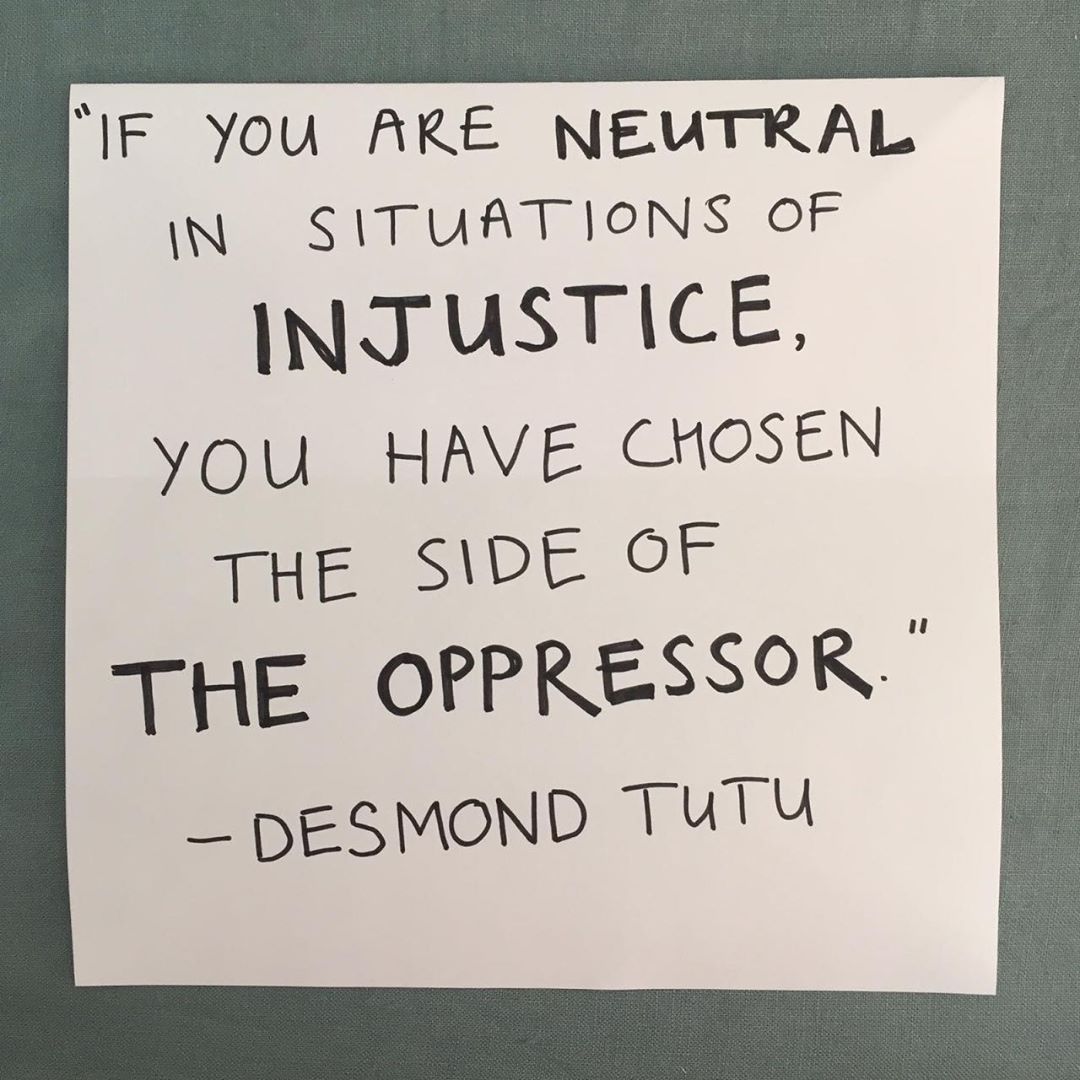 "IF YOU ARE NEUTRAL
IN SITUATIONS OF
INJUSTICE,
YOU HAVE CHOSEN
THE SIDE OF
THE OPPRESSOR."
– DESMOND TUTU